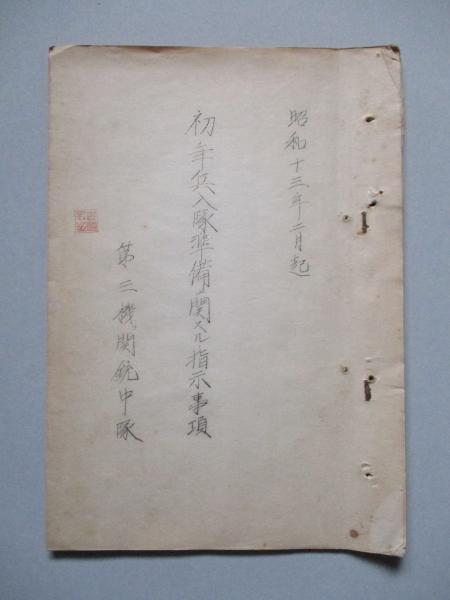 昭和十三年二月起
初年兵入隊準備ニ関スル指示事項
第三機関銃中隊